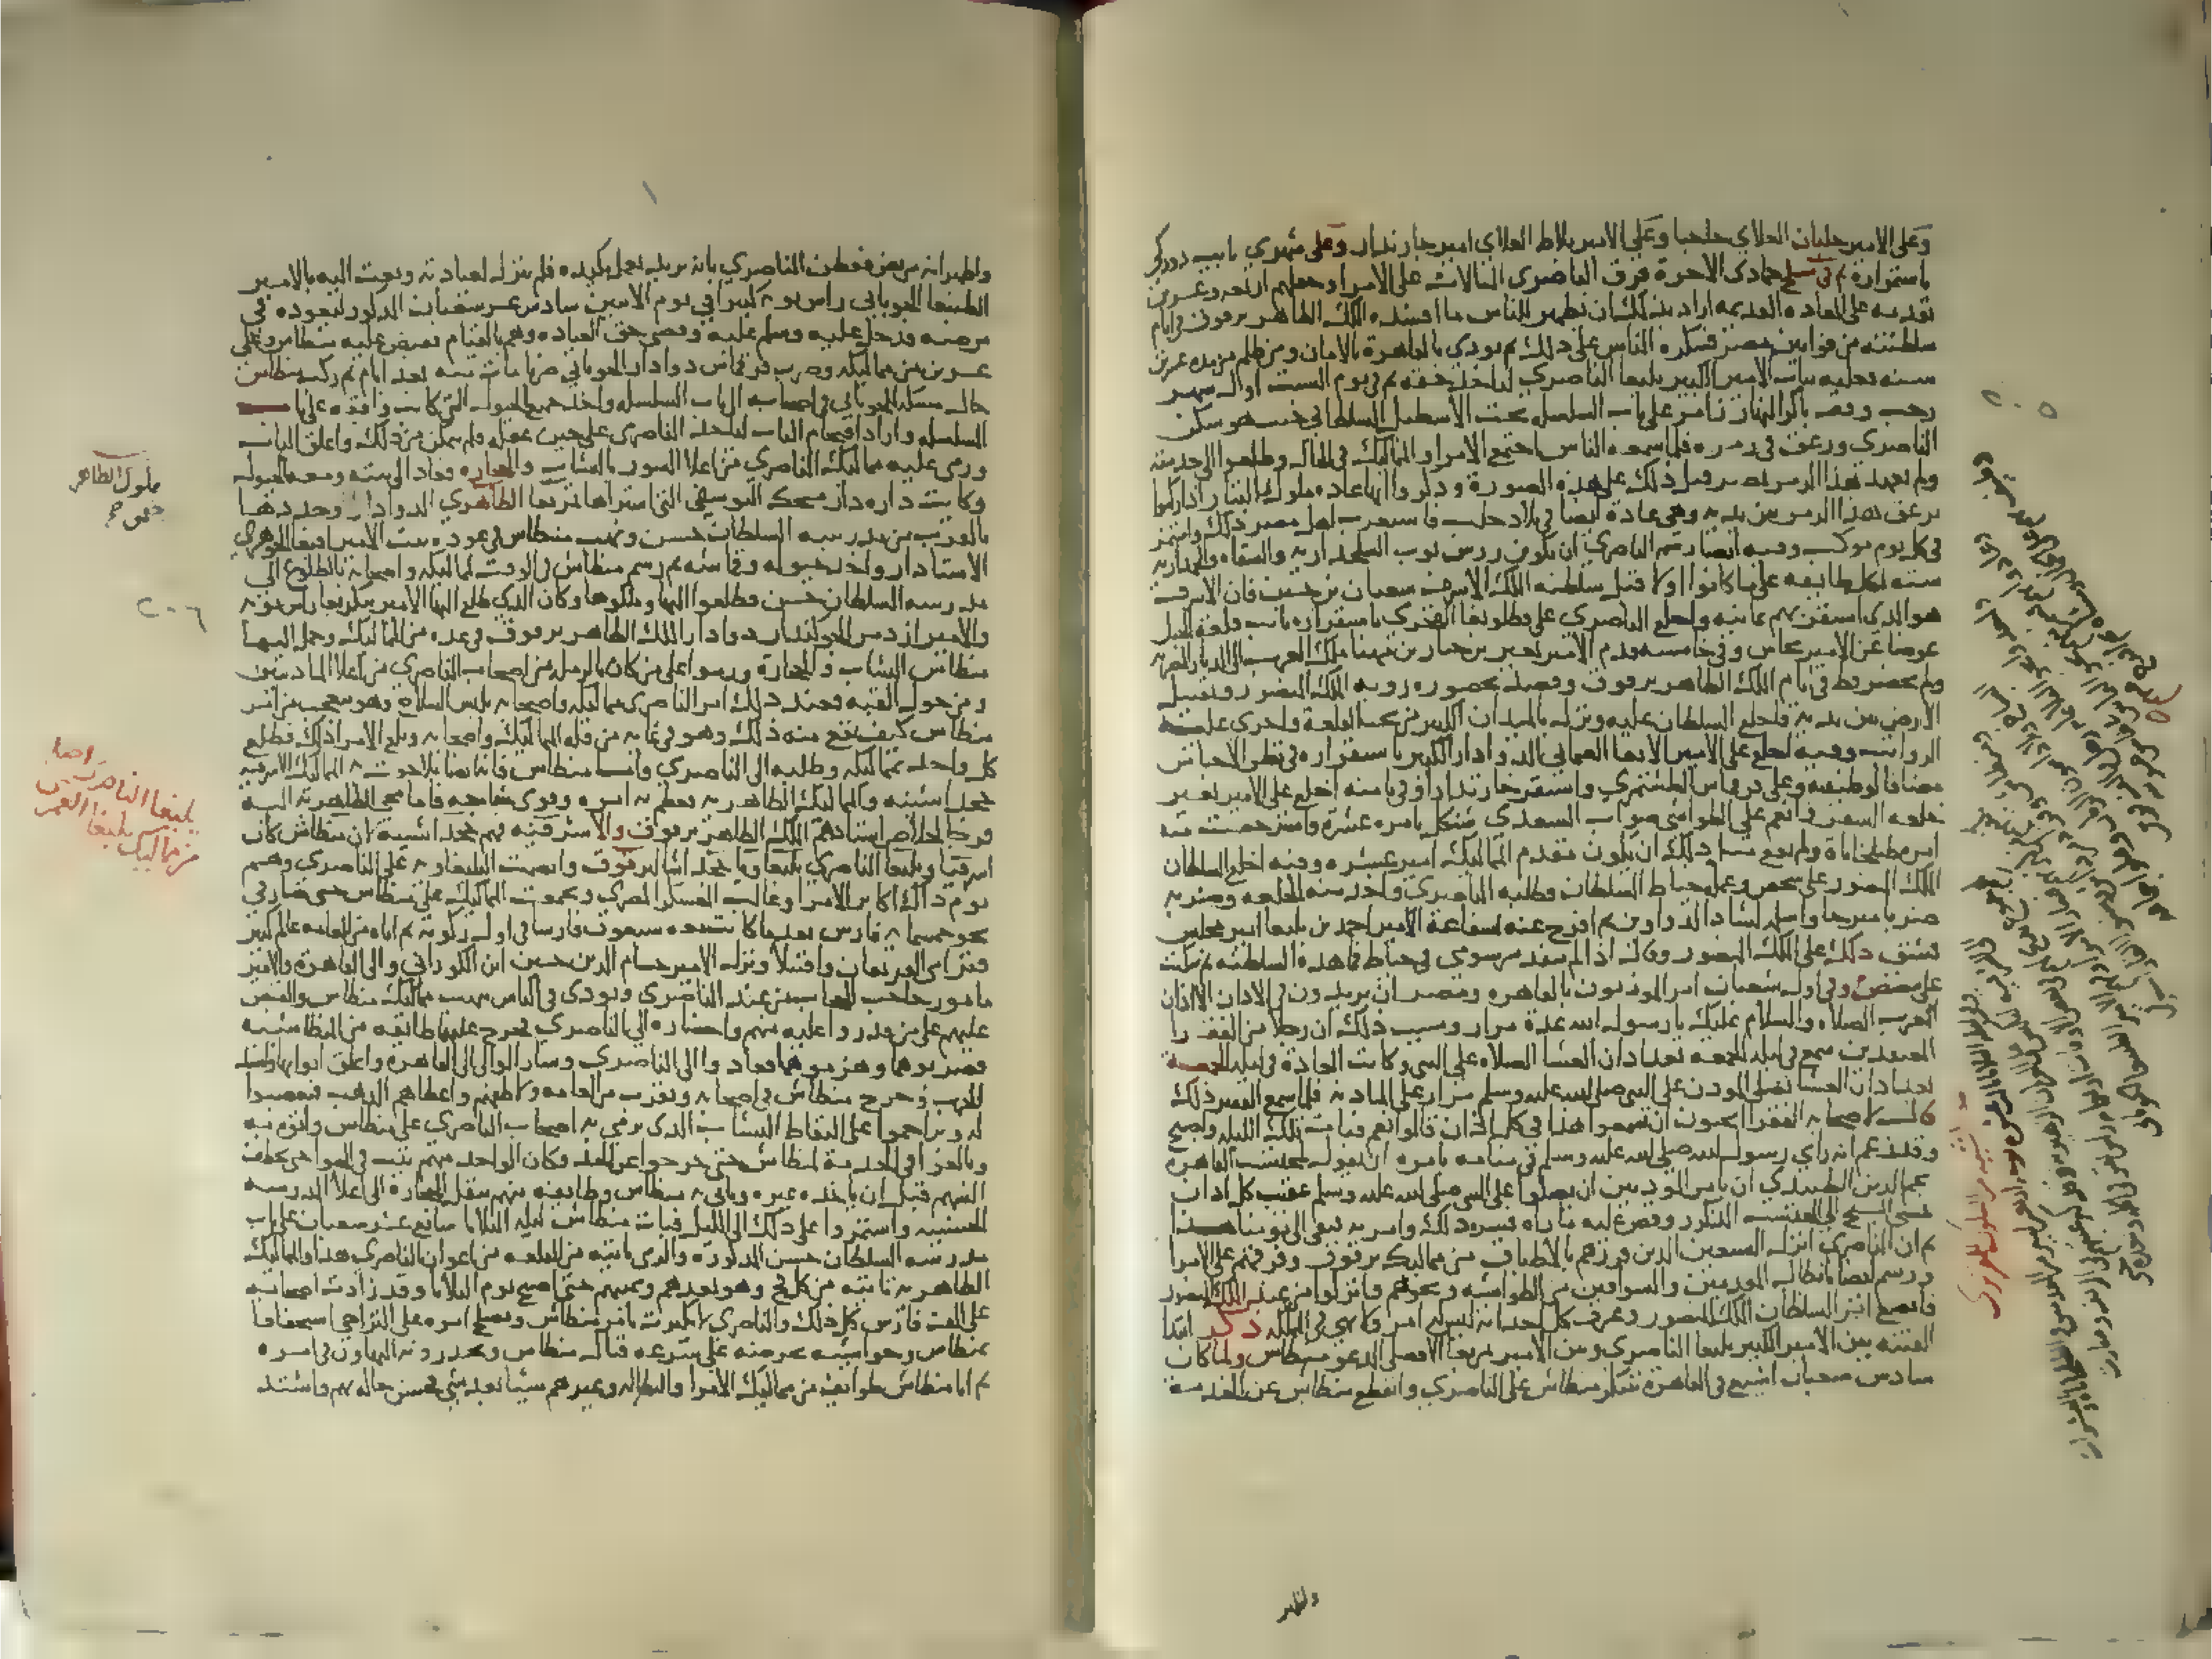 وعلى الامير جلبان العلاي حاجبا وعلى الامير بلاط العلاي امير جاندار وعلى شهري نايب دوركي
باستمراره ثم في سلخ جمادى الاخرة فرق الناصري المثالات على الامرا وجعلهم اربعه وعشرين
تقدمه على العاده القديمه اراد بذلك ان يظهر للناس ما افسده الملك الظاهر برقوق في ايام
سلطنته من قوانين مصر فشكره الناس على ذلك ثم نودي بالقاهرة بالامان ومن ظلم من مده عشرين
سنه فعليه بباب الامير الكبير يلبغا الناصري لياخذ حقه ثم في يوم السبت اول شهر
رجب وقف باكر النهار زامر على باب السلسله تحت الاسطبل السلطاني حيث هو سكن
الناصري وزعق في زمره فلما سمعه الناس اجتمع الامرا والمماليك في الحال وطلعوا الى خدمته
ولم يعهد هذا الزمر بمصر قبل ذلك على هذه الصورة وذكروا انها عاده ملوك التتار اذا ركبوا
يزعق هذا الزمر بين يديه وهي عادة ايضا في بلاد حلب فاستغرب اهل مصر ذلك واستمر
في كل يوم موكب وفيه ايضا رسم الناصري ان يكون روس نوب السلحداريه والسقاه والجمداريه
سته لكل طايفه على ما كانوا اولا قبل سلطنه الملك الاشرف شعبان بن حسين فان الاشرف
هو الذي استقر بهم ثمانيه واخلع الناصري على قطلوبغا الفخري باستقراره نايب قلعة الجبل
عوضا عن الامير بجاس وفي خامسه قدم الامير نعير بن حيار بن مهنا ملك العرب الى الديار المصريه
ولم يحضر قط في ايام الملك الظاهر برقوق وقصد بحضوره رويه الملك المنصور وتقبيل
الارض بين يديه فاخلع السلطان عليه ونزل بالميدان الكبير من تحت القلعة واجرى عليه
الرواتب وفيه اخلع على الامير الابغا العثماني الدوادار الكبير باستقراره في نظر الاحباس
مضافا لوظيفته وعلى قرقماس الطشتمري واستقر خازندارا وفي ثامنه اخلع على الامير نعير
خلعه السفر وانعم على الطواشي صواب السعدي شنكل بامره عشرة واسترجعت منه
امره طبلخاناه ولم يقع مثل ذلك ان يكون مقدم المماليك امير عشره وفيه اخلع السلطان
الملك المنصور على شخص وعمله خياط السلطان فطلبه الناصري واخذ منه الخلعه وضربه
ضربا مبرحا واسلمه لشاد الدواوين ثم افرج عنه بشفاعة الامير احمد بن يلبغا امير مجلس
فشق ذلك على الملك المنصور وقال اذا لم ينفذ مرسومي في خياط فما هذه السلطنه ثم سكت
على مضض وفي اول شعبان امر الموذنون بالقاهره ومصر ان يزيدون في الاذان الا اذان
المغرب الصلاه والسلام عليك يا رسول الله عدة مرار وسبب ذلك ان رجلا من الفقرا
المعتقدين سمع في ليله الجمعه بعد اذان العشا الصلاه على النبي وكانت العادة في ليله الجمعة
بعد اذان العشا يصلي الموذن على النبي صلى الله عليه وسلم مرار على الماذنه فلما سمع الفقير ذلك
قال لاصحابه الفقرا اتحبون ان تسمعوا هذا في كل اذان قالوا نعم فبات تلك الليله واصبح
وقد زعم انه راى رسول الله صلى الله عليه وسلم في منامه يامره ان يقول لمحتسب القاهره
نجم الدين الطنبدي ان يامر الموذنين ان يصلوا على النبي صلى الله عليه وسلم عقيب كل اذان
فمضى الشيخ الى المحتسب المذكور وقص عليه ما راه فسره ذلك وامر به فبقي الى يومنا هذا
ثم ان الناصري انزل السبعين الذين قررهم بالاطباق من مماليك برقوق وفرقهم على الامرا
ورسم ايضا بابطال المقدمين والسواقين من الطواشيه ونحوهم وانزلوا من عند الملك المنصور
فاتضع امر السلطان الملك المنصور وعرف كل احد انه ليس له امر ولا نهي في المملكه ذكر ابتدا
الفتنه بين الامير الكبير يلبغا الناصري وبين الامير تمربغا الافضلي المدعو منطاش ولما كان
سادس شعبان اشيع في القاهرة تنكر منطاش على الناصري وانقطع منطاش عن الخدمة
واظهر
٢٠٥
واظهر انه مريض ففطن الناصري بانه يريد يعمل مكيده فلم ينزل لعيادته وبعث اليه بالامير
الطنبغا الجوباني راس نوبه كبير في يوم الاثنين سادس عشر شعبان المذكور ليعوده في
مرضه فدخل عليه وسلم عليه وقضى حق العياده وهم بالقيام فقبض عليه منطاش وعلى
عشرين من مماليكه وضرب قرقماس دوادار الجوباني ضربا مات منه بعد ايام ثم ركب منطاش
حال مسكه الجوباني في اصحابه الى باب السلسله واخذ جميع الخيول التي كانت واقفه على باب
السلسله واراد اقتحام الباب لياخذ الناصري على حين غفله فلم يتمكن من ذلك واغلق الباب
ورمى عليه مماليك الناصري من اعلا السور بالنشاب والحجاره فعاد الى بيته ومعه الخيول
وكانت داره دار منجك اليوسفي التي اشتراها تمربغا الظاهري الدوادار وجددها
بالقرب من مدرسه السلطان حسن ونهب منطاش في عوده بيت الامير اقبغا الجوهري
الاستادار واخذ خيوله وقماشه ثم رسم منطاش في الوقت لمماليكه واصحابه بالطلوع الى
مدرسه السلطان حسن فطلعوا اليها وملكوها وكان الذي طلع اليها الامير تنكزبغا راس نوبه
والامير ازدمر الجوكندار دوادار الملك الظاهر برقوق في عده من المماليك وحمل اليها
منطاش النشاب والحجارة ورموا على من كان بالرميله من اصحاب الناصري من اعلا الماذنتين
ومن حول القبه فعند ذلك امر الناصري مماليكه واصحابه بلبس السلاح وهو يتعجب من امر
منطاش كيف يقع منه ذلك وهو في غايه من قله المماليك واصحابه وبلغ الامرا ذلك فطلع
كل واحد بمماليكه وطلبه الى الناصري واما منطاش فانه ايضا تلاحقت به المماليك الاشرفيه
خجداشيته والمماليك الظاهريه فعظم بهم امره وقوي جاشه فاما مجي الظاهريه اليه
فرجا لخلاص استادهم الملك الظاهر برقوق والاشرفيه فهم خجداشيته لان منطاش كان
اشرفيا ويلبغا الناصري يلبغاويا خجداشا لبرقوق وانضمت اليلبغاويه على الناصري وهم
يوم ذاك اكابر الامرا وغالب العسكر المصري وتجمعت المماليك على منطاش حتى صار في
نحو خمسمايه فارس بعد ما كان معه سبعون فارسا في اول ركوبه ثم اتاه من العامه عالم كبير
فترامى الفريقان واقتتلا ونزل الامير حسام الدين حسين ابن الكوراني والي القاهرة والامير
مامور حاجب الحجاب من عند الناصري ونودي في الناس بنهب مماليك منطاش والقبض
عليهم على من قدروا عليه منهم واحضاره الى الناصري فخرج عليهما طايفه من المنطاشيه
فضربوهما وهزموهما فعادوا الى الناصري وسار الوالي الى القاهرة واغلق ابوابها
الحرب وخرج منطاش في اصحابه وتقرب من العامه ولاطفهم واعطاهم الذهب فتعصبوا
له وتزاحموا على التقاط النشاب الذي يرمي به اصحاب الناصري على منطاش واتوه به
وبالغوا في الخدمة لمنطاش حتى خرجوا عن الحد فكان الواحد منهم يثب في الهوا حتى يخطف
السهم قبل ان ياخذه غيره وياتي به منطاش وطايفه منهم تنقل الحجارة الى اعلا المدرسه
الحسنيه واستمروا على ذلك الى الليل فبات منطاش ليله الثلاثا سابع عشر شعبان على باب
مدرسه السلطان حسن المذكوره والرمي ياتيه من القلعه من اعوان الناصري هذا والمماليك
الظاهريه تاتيه من كل فج وهو يعدهم ويمنيهم حتى اصبح يوم الثلاثا وقد زادت اصحابه
على الف فارس كل ذلك والناصري لا يكترث بامر منطاش ويصلح امره على التراخي استخفافا
بمنطاش وحواشيه تحرضه على سرعه قتال منطاش وتحذره التهاون في امره
ثم اتى منطاش طوايف من مماليك الامرا والبطاله وغيرهم شيئا بعد شي فحسن حاله بهم واشتد
٢٠٦
يلبغا الناصري اصله
من مماليك يلبغا العمري